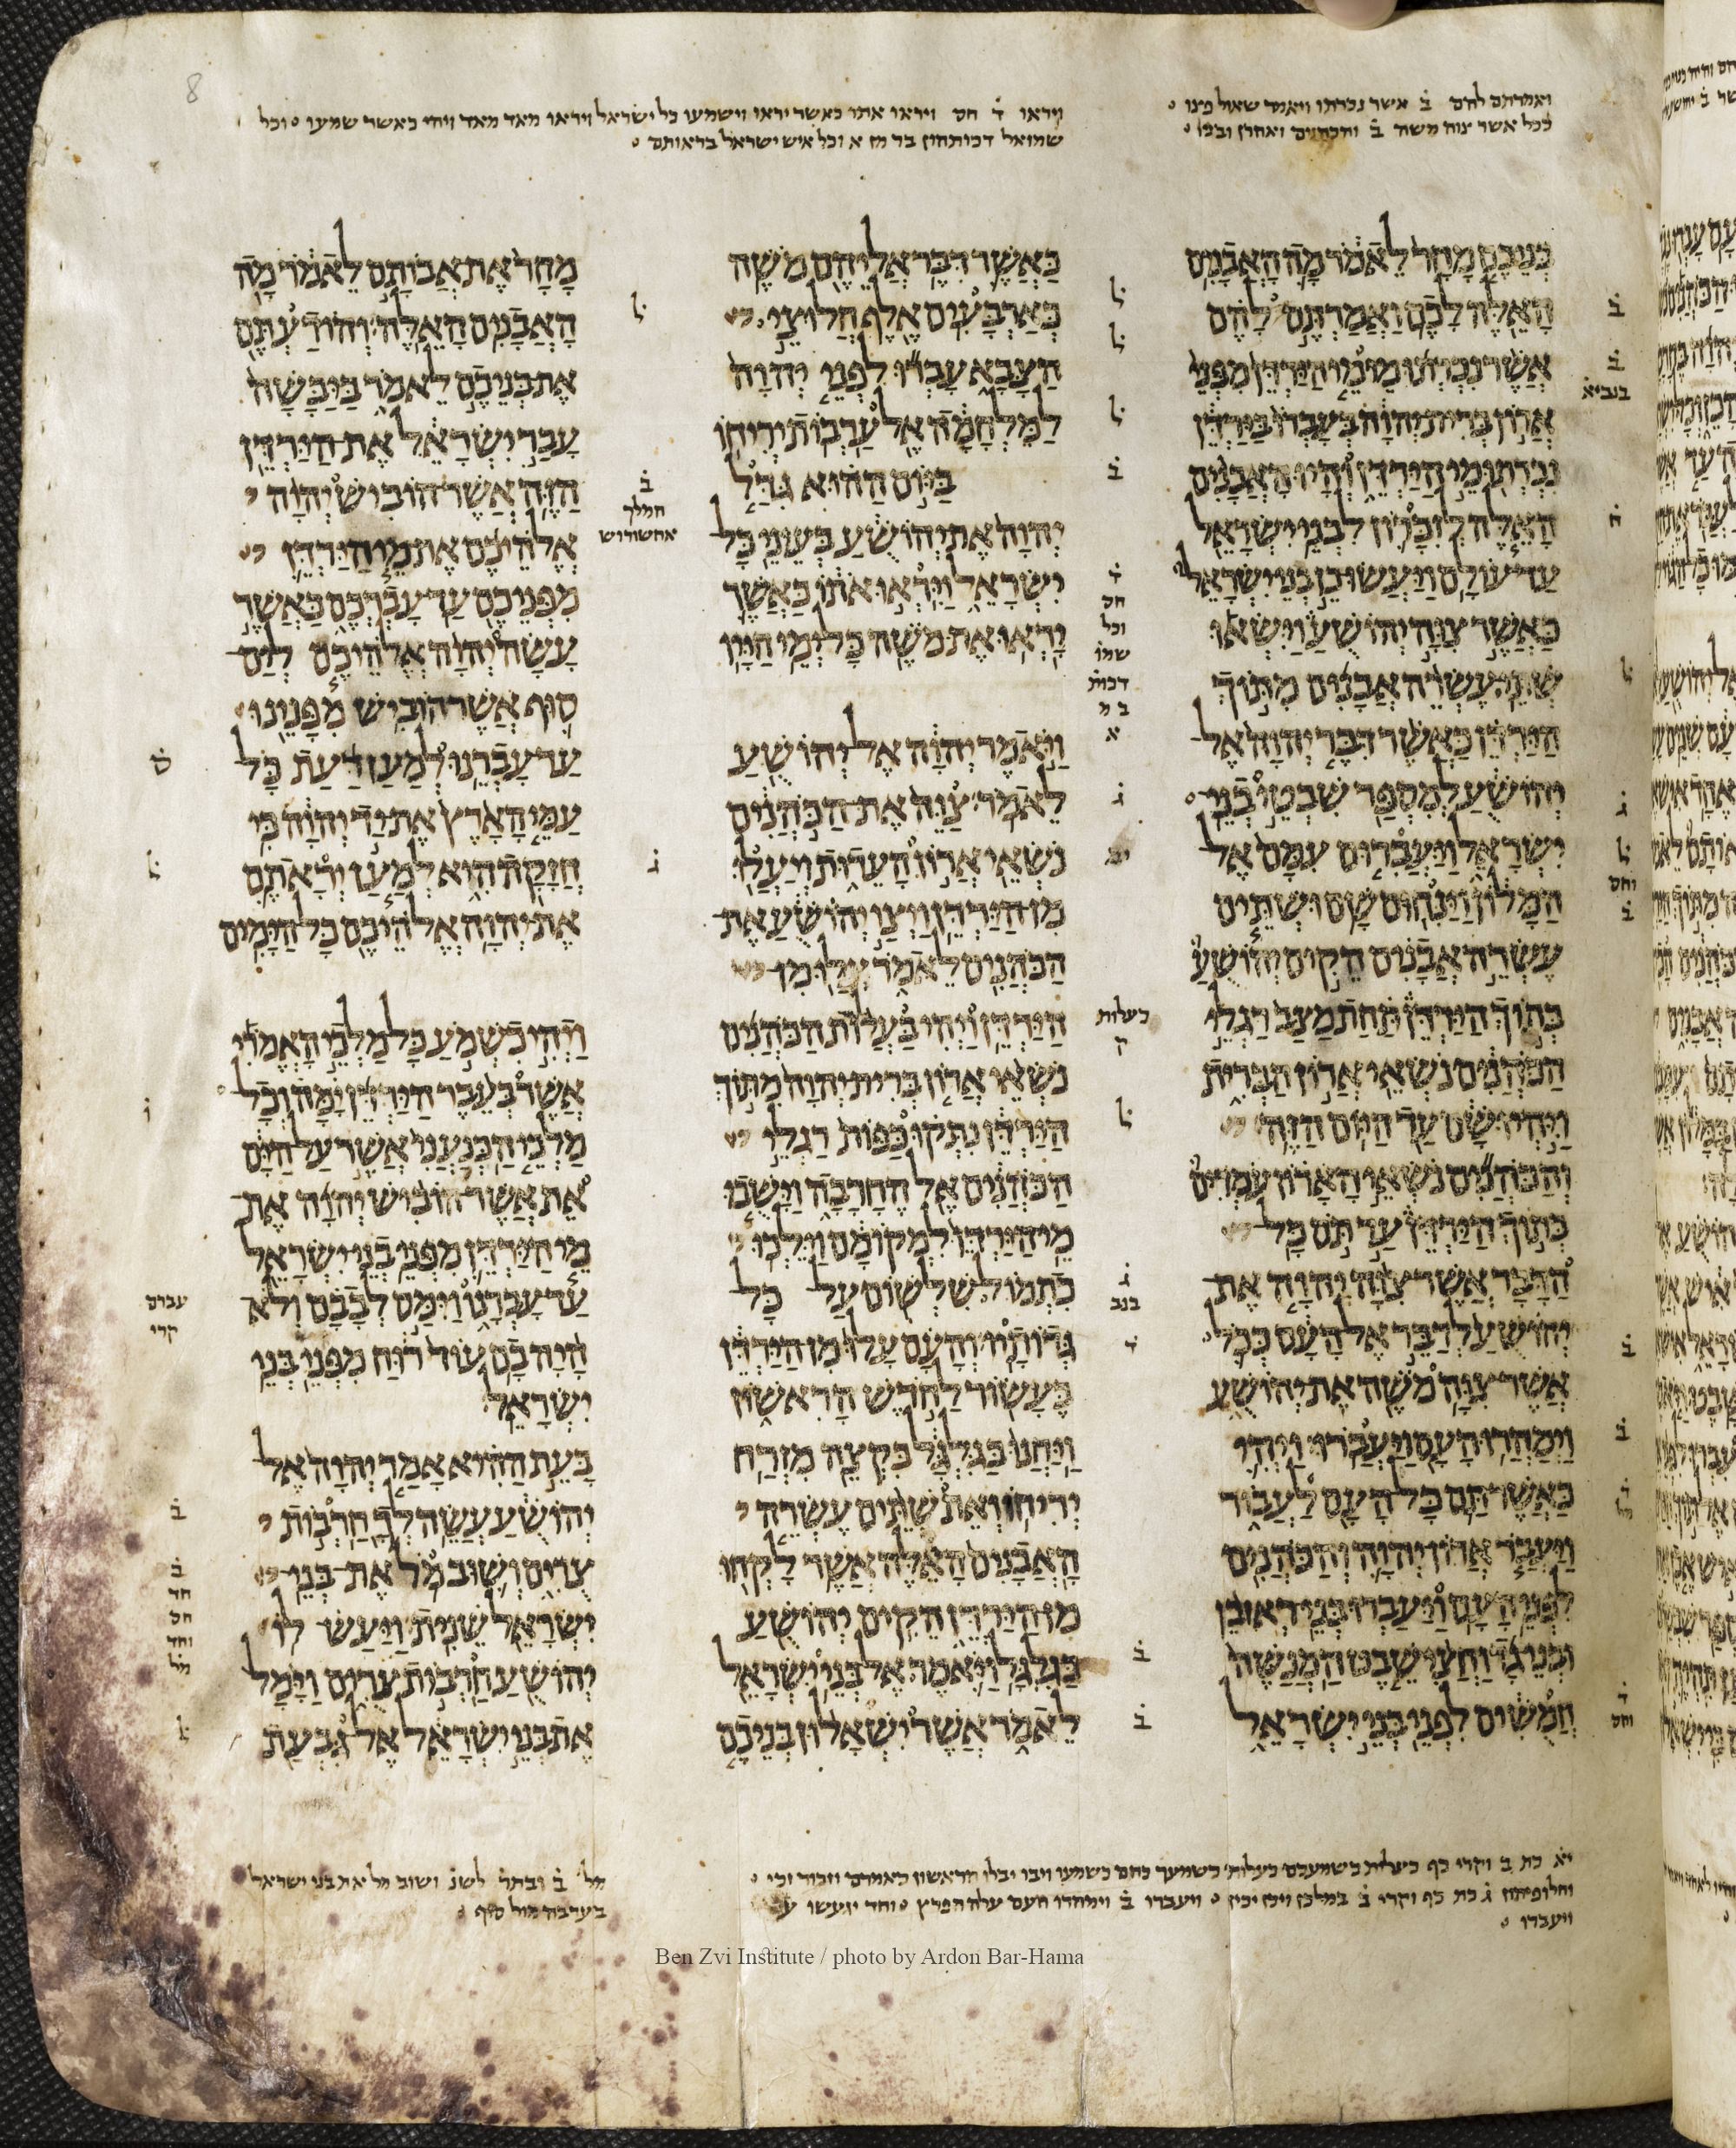 ואמרתם להם ב אשר נכרתו ויאמר שאול מינו
ככל אשר צוה משה ב והכהנים ואהרן ובניו
ויראו ד חס ויראו אתו כאשר יראו וישמעו כל ישראל ויראו מאד מאד ויהי כאשר שמעו וכל
שמואל דכותהון בר מן א וכל איש ישראל בראותם
בניכם מחר לאמר מה האבנים
האלה לכם ואמרתם להם
אשר נכרתו מימי הירדן מפני
ארון ברית יהוה בעברו בירדן
נכרתו מי הירדן והיו האבנים
האלה לזכרון לבני ישראל
עד עולם ויעשו כן בני ישראל
כאשר צוה יהושע וישאו
שתי עשרה אבנים מתוך
הירדן כאשר דבר יהוה אל
יהושע למספר שבטי בני
ישראל ויעברום עמם אל
המלון וינחום שם ושתים
עשרה אבנים הקים יהושע
בתוך הירדן תחת מצב רגלי
הכהנים נשאי ארון הברית
ויהיו שם עד היום הזה
והכהנים נשאי הארון עמדים
בתוך הירדן עד תם כל
הדבר אשר צוה יהוה את
יהושע לדבר אל העם ככל
אשר צוה משה את יהושע
וימהרו העם ויעברו ויהי
כאשר תם כל העם לעבור
ויעבר ארון יהוה והכהנים
לפני העם ויעברו בני ראובן
ובני גד וחצי שבט המנשה
חמשים לפני בני ישראל
כאשר דבר אליהם משה
כארבעים אלף חלוצי
הצבא עברו לפני יהוה
למלחמה אל ערבות יריחו
ביום ההוא גדל
יהוה את יהושע בעיני כל
ישראל ויראו אתו כאשר
יראו את משה כל ימי חייו
ויאמר יהוה אל יהושע
לאמר צוה את הכהנים
נשאי ארון העדות ויעלו
מן הירדן ויצו יהושע את
הכהנים לאמר עלו מן
הירדן ויהי בעלות הכהנים
נשאי ארון ברית יהוה מתוך
הירדן נתקו כפות רגלי
הכהנים אל החרבה וישבו
מי הירדן למקומם וילכו
כתמול שלשום על כל
גדותיו והעם עלו מן הירדן
בעשור לחדש הראשון
ויחנו בגלגל בקצה מזרח
יריחו ואת שתים עשרה
האבנים האלה אשר לקחו
מן הירדן הקים יהושע
בגלגל ויאמר אל בני ישראל
לאמר אשר ישאלון בניכם
מחר את אבותם לאמר מה
האבנים האלה והודעתם
את בניכם לאמר ביבשה
עבר ישראל את הירדן
הזה אשר הוביש יהוה
אלהיכם את מי הירדן
מפניכם עד עברכם כאשר
עשה יהוה אלהיכם לים
סוף אשר הוביש מפנינו
עד עברנו למען דעת כל
עמי הארץ את יד יהוה כי
חזקה היא למען יראתם
את יהוה אלהיכם כל הימים
ויהי כשמע כל מלכי האמרי
אשר בעבר הירדן ימה וכל
מלכי הכנעני אשר על הים
את אשר הוביש יהוה את
מי הירדן מפני בני ישראל
עד עברנו וימס לבבם ולא
היה בם עוד רוח מפני בני
ישראל
בעת ההיא אמר יהוה אל
יהושע עשה לך חרבות
צרים ושוב מל את בני
ישראל שנית ויעש לו
יהושע חרבות צרים וימל
את בני ישראל אל גבעת
בנביא
המלך
אחשורוש
חס
וכל
שמו
דכות
ב מ
א
בעלות
ק
בנב
וחס
עברם
קרי
חד
חס
וחד
מל
וחס
מל ב ובתר לשנ ושוב מל את בני ישראל
בערבה מול סוף
Ben Zvi Institute / photo by Ardon Bar-Hama
8